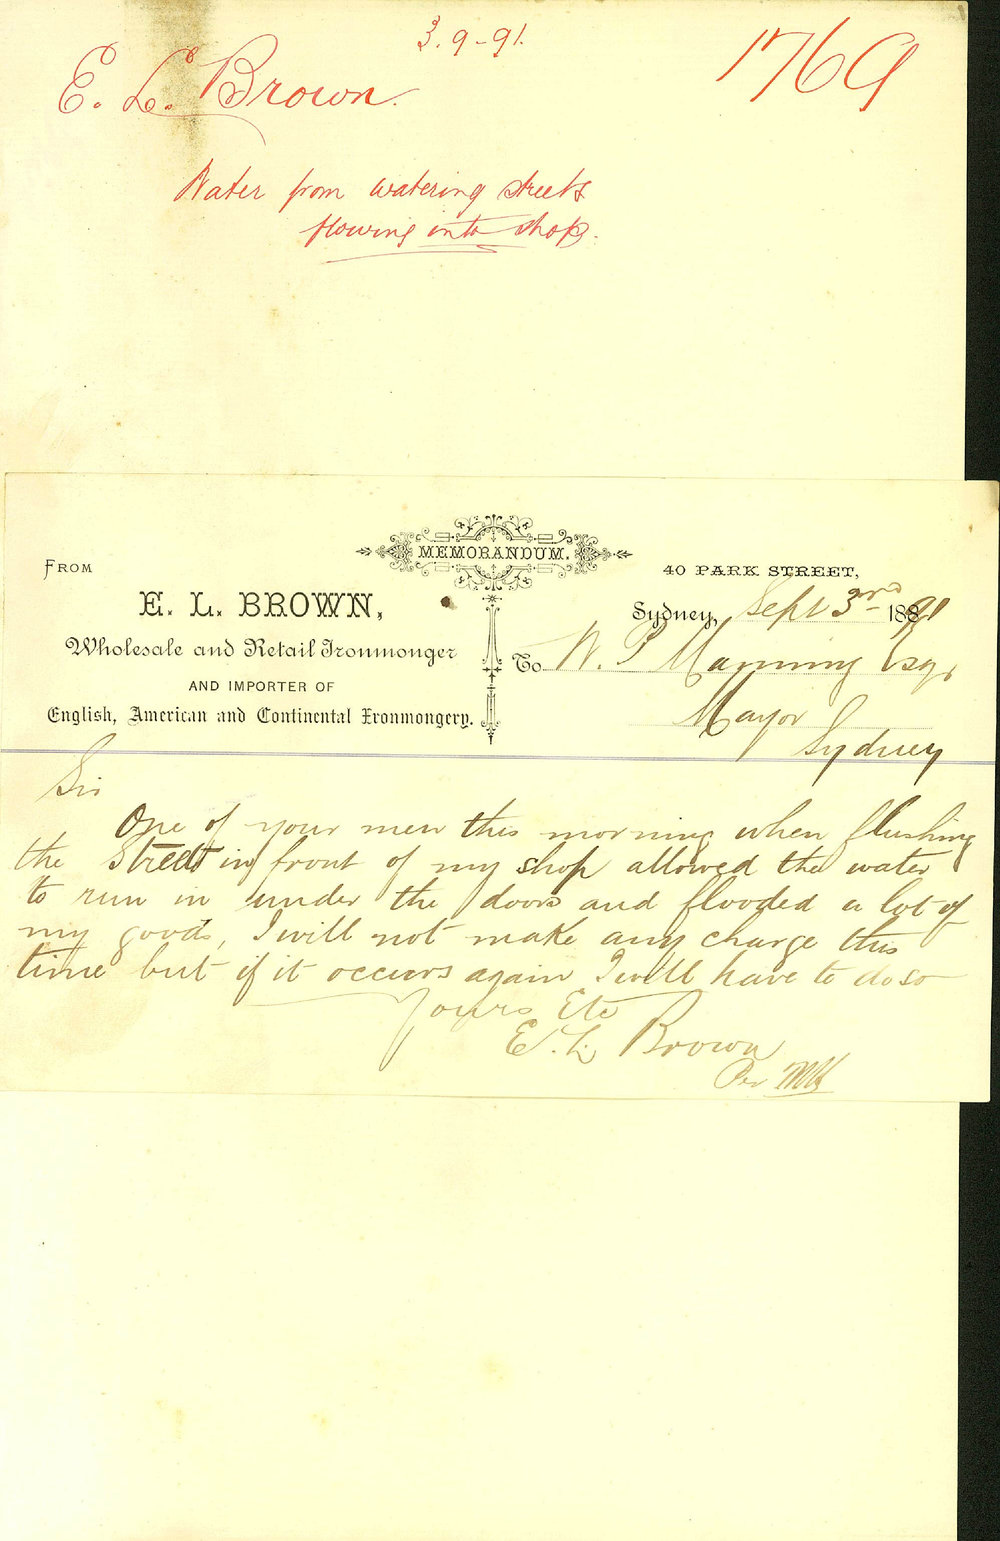 3.9-91.
1769
E. L. Brown.
Water from watering streets
flowing into shop.
MEMORANDUM.
FROM
40 PARK STREET,
E. L. BROWN,
Sydney, Sept 3rd 1891
Wholesale and Retail Ironmonger
To W. P Manning Esq,
AND IMPORTER OF
English, American and Continental Ironmongery.
Mayor
Sydney
Sir
One of your men this morning when flushing
the Street in front of my shop allowed the water
to run in under the doors and flooded a lot of
my goods, I will not make any charge this
time but if it occurs again I will have to do so
Yours Etc
E. L. Brown
Per